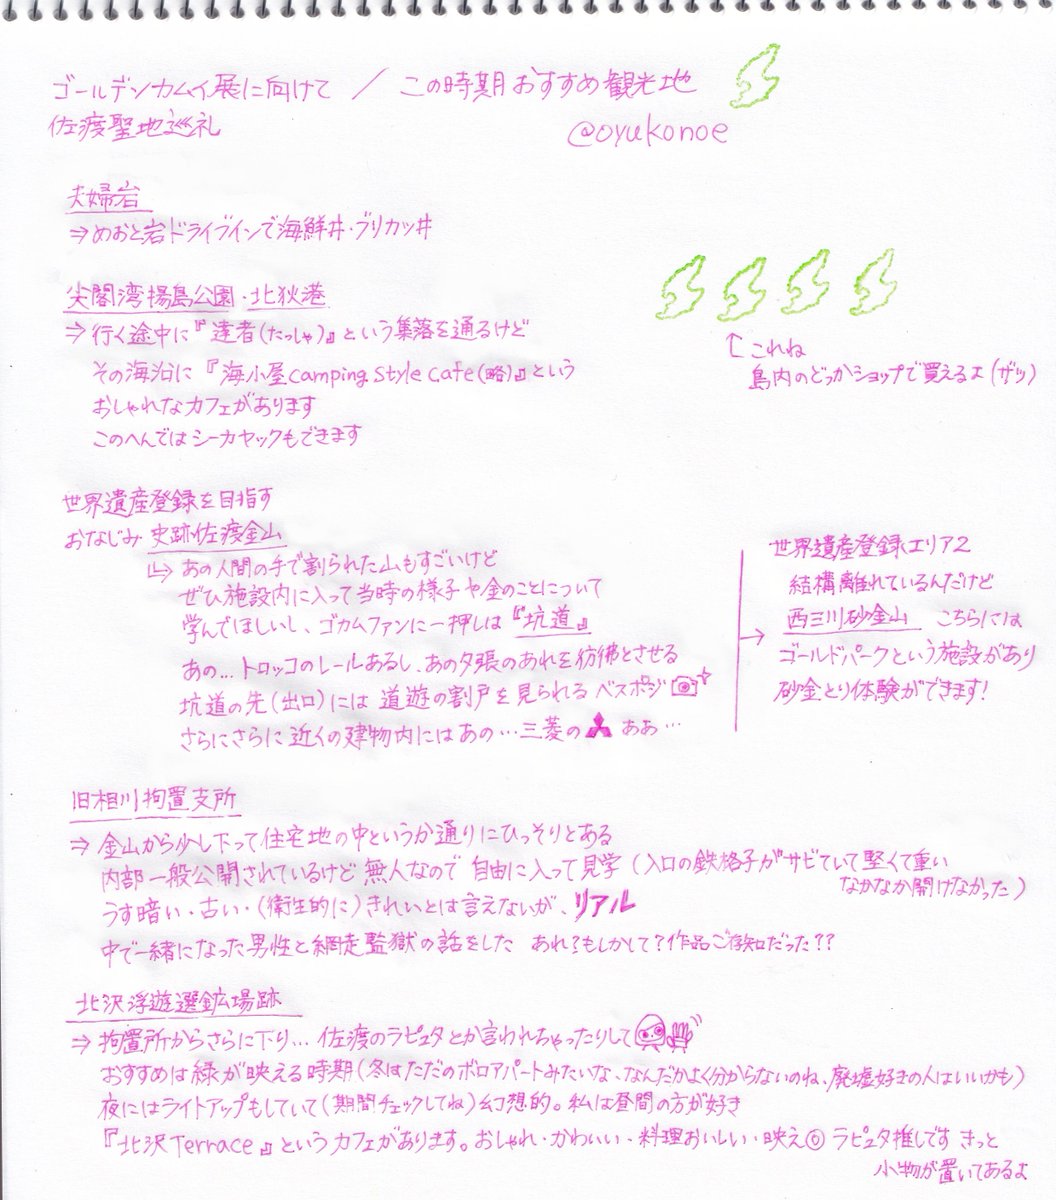 ゴールデンカムイ展に向けて ／ この時期おすすめ観光地
佐渡聖地巡礼
@oyukonoe
夫婦岩
⇒ めおと岩ドライブインで海鮮丼・ブリカツ丼
尖閣湾揚島公園・北狄港
⇒ 行く途中に『達者(たっしゃ)』という集落を通るけど
その海沿に『海小屋camping style cafe(略)』という
おしゃれなカフェがあります
このへんではシーカヤックもできます
これね
島内のどっかショップで買えるよ(ザツ)
世界遺産登録を目指す
おなじみ 史跡佐渡金山
あの人間の手で割られた山もすごいけど
ぜひ施設内に入って当時の様子や金のことについて
学んでほしいし、ゴカムファンに一押しは『坑道』
あの…トロッコのレールあるし、あの夕張のあれを彷彿とさせる
坑道の先(出口)には 道遊の割戸を見られるベスポジ
さらにさらに 近くの建物内にはあの…三菱の ああ…
世界遺産登録エリア2
結構離れているんだけど
西三川砂金山 こちらには
ゴールドパークという施設があり
砂金とり体験ができます!
旧相川拘置支所
⇒ 金山から少し下って住宅地の中というか通りにひっそりとある
内部一般公開されているけど無人なので 自由に入って見学(入口の鉄格子がサビていて堅くて重い
なかなか開けなかった)
うす暗い・古い・(衛生的に)きれいとは言えないが、リアル
中で一緒になった男性と網走監獄の話をした あれ?もしかして?作品ご存知だった??
北沢浮遊選鉱場跡
⇒ 拘置所からさらに下り… 佐渡のラピュタとか言われちゃったりして
おすすめは緑が映える時期(冬はただのボロアパートみたいな、なんだかよく分からないのね、廃墟好きの人はいいかも)
夜にはライトアップもしていて(期間チェックしてね)幻想的。私は昼間の方が好き
『北沢Terrace』というカフェがあります。おしゃれ・かわいい・料理おいしい・映え◎ ラピュタ推しです きっと
小物が置いてあるよ